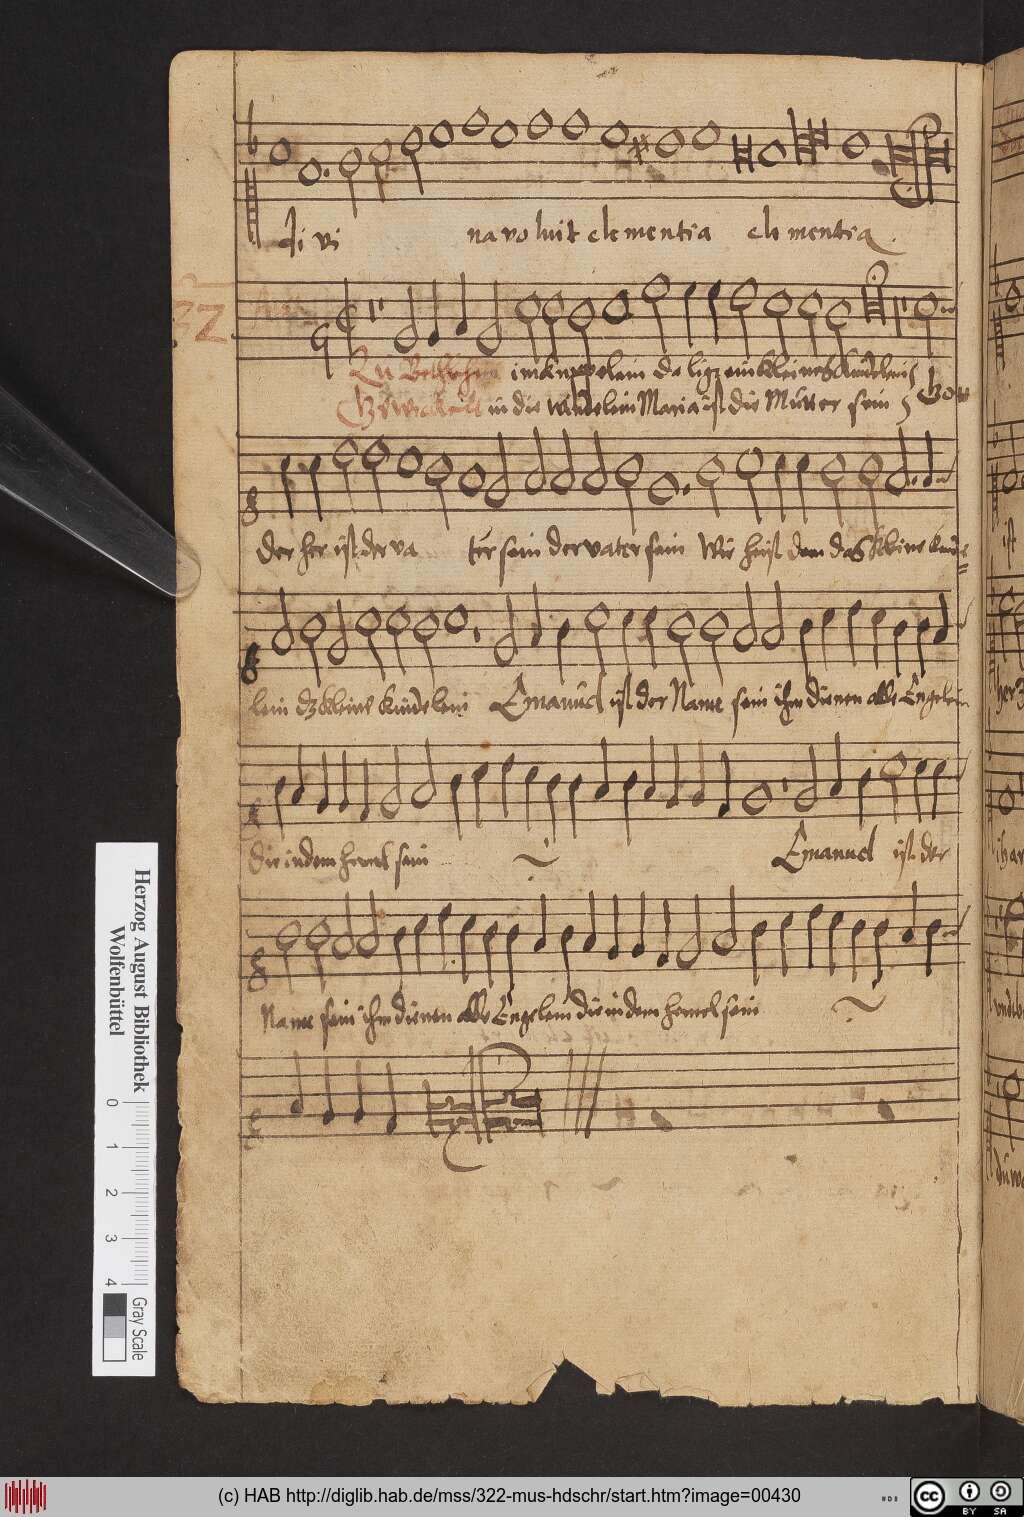 di vi na vo luit cle mentia cle mentia
32
Zu Bethlehem im kripelein da ligt ein kleines kindelein
in die windelein Maria ist die Mutter sein Gott
der her ist der va ter sein der vater sein Wie heist dan das kleine kinde
lein dz kleine kindelein Emanuel ist der Name sein ihm dienen alle Engelein
die in dem hemel sein Emanuel ist der
Name sein ihm dienen alle Engelein die in dem hemel sein
Herzog August Bibliothek
Wolfenbüttel
0 1 2 3 4
Gray Scale
(c) HAB http://diglib.hab.de/mss/322-mus-hdschr/start.htm?image=00430
cc BY SA